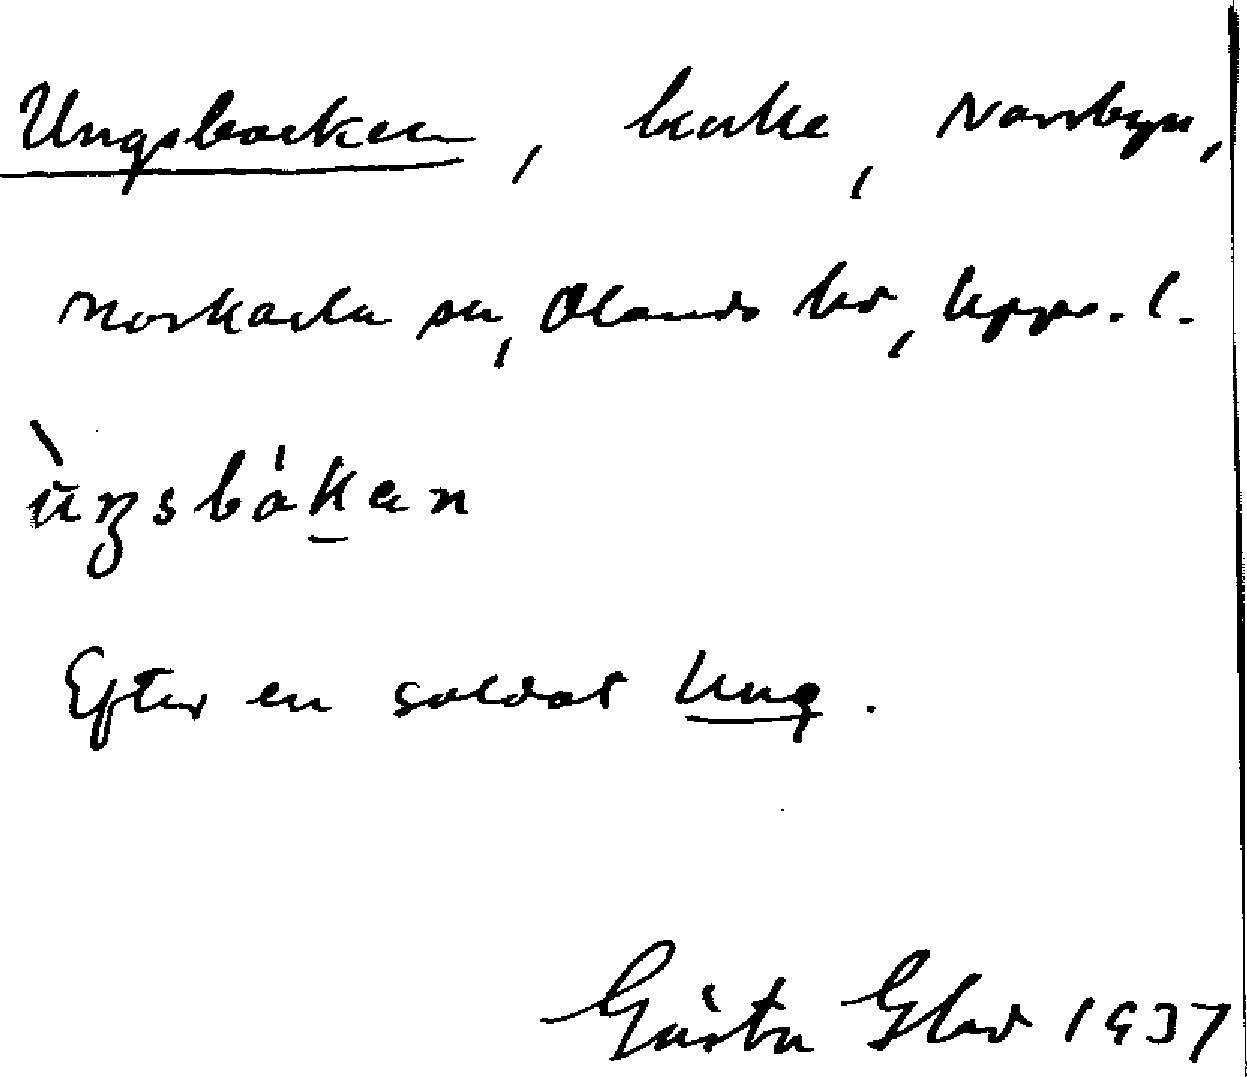 Ungsbacken, backe, Norrbyn,
Morkarla sn, Olands hd, Upps. l.
ùŋsbákan
Efter en soldat Ung.
Gösta Glad 1937